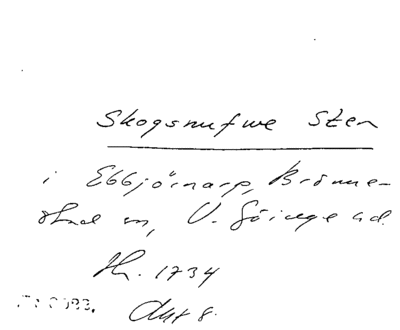 Skogsnufwe Sten
i Ebbjörnarp, Brönne-
sn, V. Göinge hd.
fr. 1734
Akt 8.